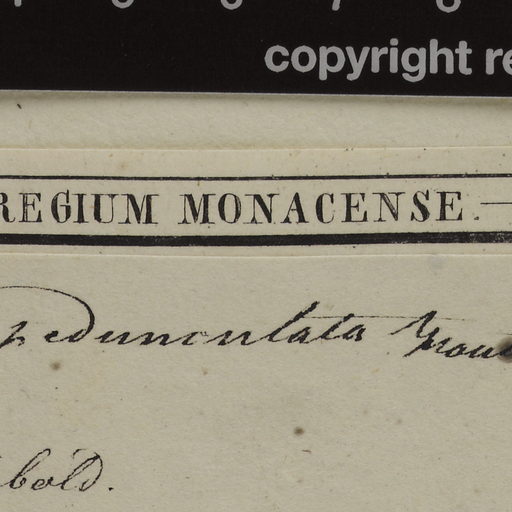 copyright re
REGIUM MONACENSE.
pedunculata
bold.